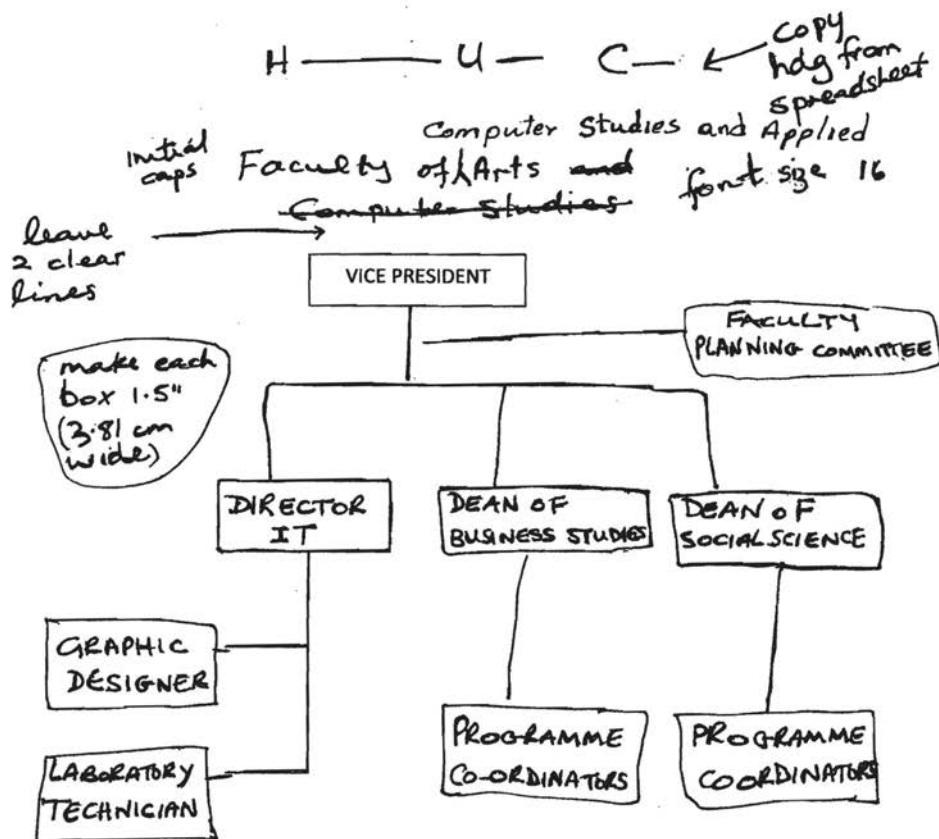 H — U — C —
copy
hdg from
spreadsheet
Computer Studies and Applied
initial
caps
Faculty of Arts and
font size 16
Computer Studies
leave
2 clear
lines
VICE PRESIDENT
FACULTY
PLANNING COMMITTEE
make each
box 1.5"
(3.81 cm
wide)
DIRECTOR
IT
DEAN OF
BUSINESS STUDIES
DEAN OF
SOCIAL SCIENCE
GRAPHIC
DESIGNER
PROGRAMME
CO-ORDINATORS
PROGRAMME
COORDINATORS
LABORATORY
TECHNICIAN